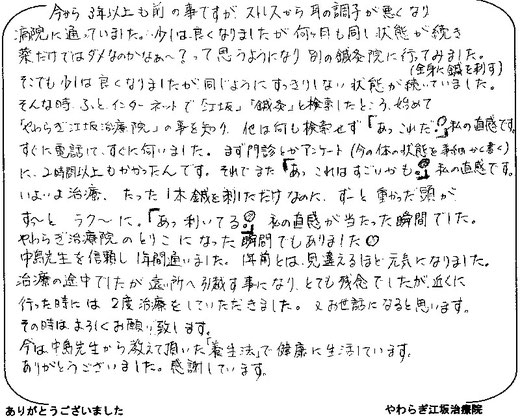 今から3年以上も前の事ですが、ストレスから耳の調子が悪くなり
病院に通っていました。少しは良くなりましたが何ヶ月も同じ状態が続き
薬だけではダメなのかなぁ〜?って思うようになり別の鍼灸院に行ってみました。
(全身に鍼を刺す)
そこでも少しは良くなりましたが同じようにすっきりしない状態が続いていました。
そんな時、ふと、インターネットで「江坂」「鍼灸」と検索したところ、始めて
「やわらぎ江坂治療院」の事を知り、他は何も検索せず「あっこれだ!!」私の直感です。
すぐに電話して、すぐに伺いました。まず問診とかアンケート(今の体の状態を事細かく書く)
に、2時間以上もかかったんです。それでまた「あっこれはすごいかも!!」私の直感です。
いよいよ治療、たった1本鍼を刺しただけなのに、ずーと重かった頭が
すっ〜と ラク〜に。「あっ利いてる!!」私の直感が当たった瞬間でした。
やわらぎ治療院のとりこになった瞬間でもありました♡
中島先生を信頼し1年間通いました。1年前とは、見違えるほど元気になりました。
治療の途中でしたが遠い所へ引越す事になり、とても残念でしたが、近くに
行った時には2度治療をしていただきました。又お世話になると思います。
その時はよろしくお願い致します。
今は中島先生から教えて頂いた「養生法」で健康に生活しています。
ありがとうございました。感謝しています。
ありがとうございました
やわらぎ江坂治療院